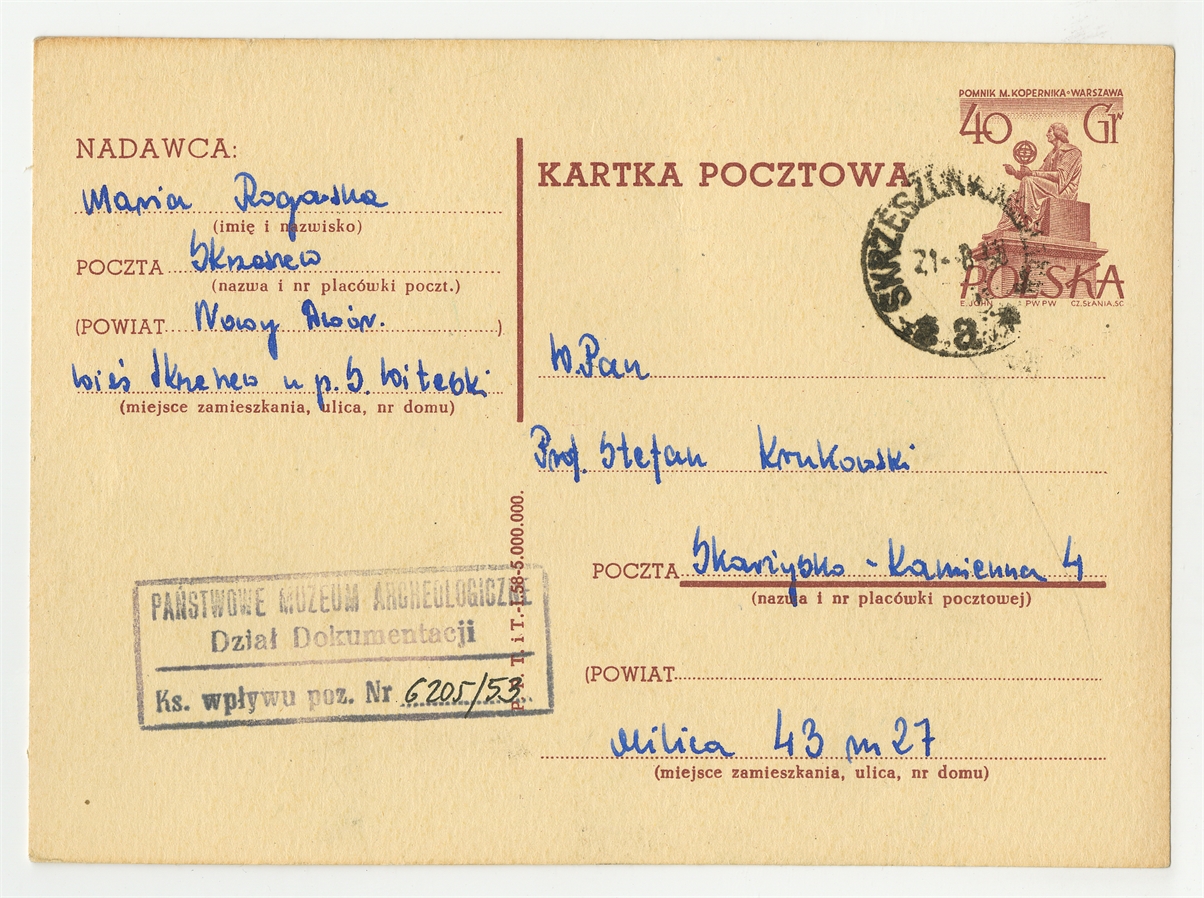 POMNIK M. KOPERNIKA-WARSZAWA
40 Gr
POLSKA
E. JOHN PWPW CZ. SŁANIA, SC
NADAWCA:
Maria Rogawska
(imię i nazwisko)
POCZTA Skrzeszew
(nazwa i nr placówki poczt.)
(POWIAT Nowy Dwór. )
wieś u p. S. Witebski
(miejsce zamieszkania, ulica, nr domu)
KARTKA POCZTOWA
21
a
W.Pan
Prof. Stefan Krukowski
POCZTA Skarżysko - Kamienna 4
(nazwa i nr placówki pocztowej)
(POWIAT
Milica 43 m 27
(miejsce zamieszkania, ulica, nr domu)
P. P. T. i T.-I.58-5.000.000.
PAŃSTWOWE MUZEUM ARCHEOLOGICZNE
Dział Dokumentacji
Ks. wpływu poz. Nr 6205/53